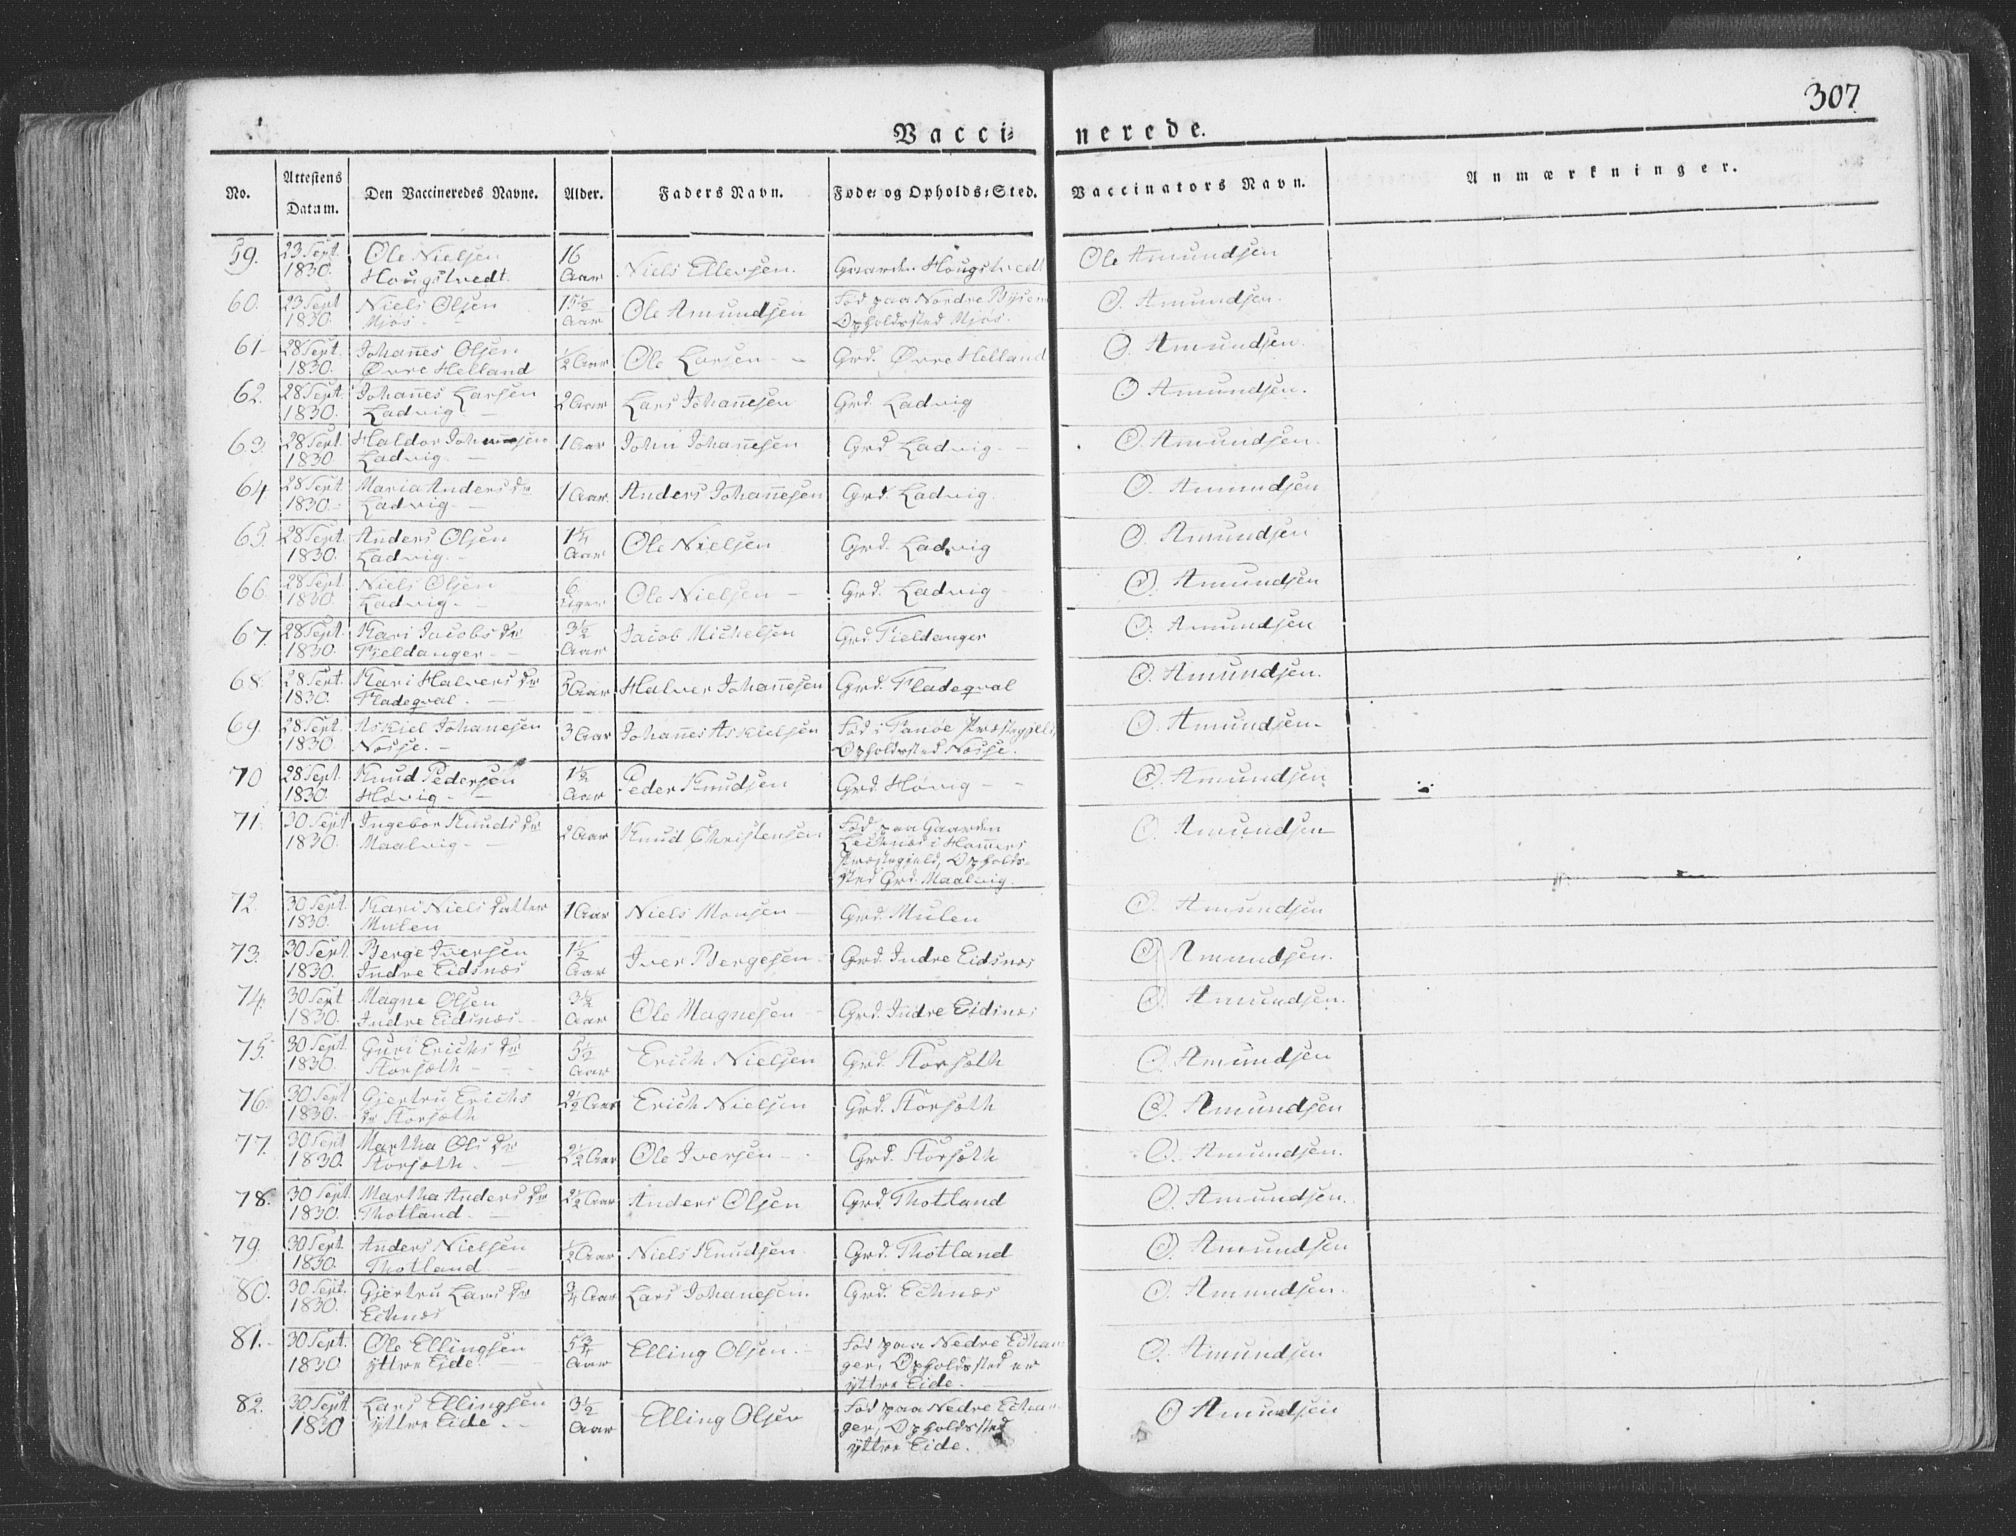 307
Vacci- nerede.
No. Attestens Datum. Den Vaccineredes Navne. Alder. Faders Navn. Føde- og Opholds-Sted. Vaccinators Navn. Anmærkninger.
59. 23 Sept. Ole Nielsen 16
1830. Hougstvedt. Aar Niels Ellevsen. Gaarden Hougstvedt Ole Amundsen
60. 23 Sept Niels Olsen 1 5/12 Fød paa Nordre
1830. Mjøs. Aar Ole Amundsen Opholdssted Mjøs. O. Amundsen.
61 28 Sept. Johannes Olsen
1830. Øvre Helland 1/2 Aar Ole Larsen Grd. Øvre Helland O. Amundsen.
62. 28 Sept. Johannes Larsen
1830. Ladvig 2 Aar Lars Johannesen Grd. Ladvig O Amundsen.
63. 28 Sept. Haldor Johannesen
1830 Ladvig. 1 Aar John Johannesen Grd Ladvig. O. Amundsen.
64 28 Sept Maria Anders Dr
1830. Ladvig 1 Aar. Anders Johannesen Grd. Ladvig. O. Amundsen
65. 28 Sept. Anders Olsen 1 1/4
1830. Ladvig. Aar Ole Nielsen Grd. Ladvig O. Amundsen
66. 28 Sept Niels Olsen 6
1830. Ladvig. Uger Ole Nielsen Grd. Ladvig O. Amundsen
67. 28 Sept. Kari Jacobs Dr 3 1/2
1830. Fjeldanger Aar Jacob Michelsen Grd Fieldanger O. Amundsen
68. 28 Sept. Kari Halvers Dr
1830. Fladeqval. 5 Aar Halver Johannesen Grd. Fladeqval O. Amundsen.
69. 28 Sept. Askiel Johanesen Fød i Fanøe Præstegjeld,
1830 Nosse. 3 Aar Johannes Askielsen Opholdssted Nosse. O. Amundsen
70 28 Sept. Knud Pedersen 1 1/2
1830. Høvig Aar Peder Knudsen Grd. Høvig O. Amundsen
71. 30 Sept Ingebor Knuds Dr Fød paa Gaarden
1830. Maalvig 2 Aar Knud Christensen i Hammers O. Amundsen
Præstegjeld, Opholds-
sted Grd. Maalvig.
72. 30 Sept. Kari Niels Datter
1830. Mulen 1 Aar Niels Monsen Grd. Mulen O. Amundsen
73. 30 Sept. Berge Iversen 1 1/2
1830. Indre Eidsnæs Aar Iver Bergesen Grd. Indre Eidsnæs O Amundsen.
74. 30 Sept Magne Olsen 3 1/2
1830. Indre Eidsnæs. Aar Ole Magnesen Grd. Indre Eidsnæs O. Amundsen.
75. 30 Sept. Guri Erichs Dr 5 1/2
1830. Storsæth Aar Erich Nielsen Grd. Storsæth O. Amundsen
76. 30 Sept Gjertru Erichs
1830. Dr Storsæth 2 1/2 Aar Erich Nielsen Grd. Storsæth O. Amundsen
77. 30 Sept Martha Ols Dr
1830. Storsæth. 2 1/2 Aar Ole Iversen Grd. Storsæth O. Amundsen.
78. 30 Sept. Martha Anders Dr
1830. Thotland. 2 1/2 Aar Anders Olsen Grd. Thotland O. Amundsen.
79. 30 Sept. Anders Nielsen
1830. Thotland. 1/2 Aar Niels Knudsen. Grd. Thotland O. Amundsen
80. 30 Sept. Gjertru Lars Dr
1830. Echnæs 3/4 Aar Lars Johanesen. Grd. Echnæs O. Amundsen.
81. 30 Sept. Ole Ellingsen 5 3/4 Fød paa Nedre Echan-
1830 Yttre Eide. Aar Elling Olsen. ger, Opholdssted er O. Amundsen
Yttre Eide.
82. 30 Sept Lars Ellingsen 3 1/2 Fød paa Nedre Echan-
1830 Yttre Eide. Aar Elling Olsen ger, Opholdssted O Amundsen
Yttre Eide.